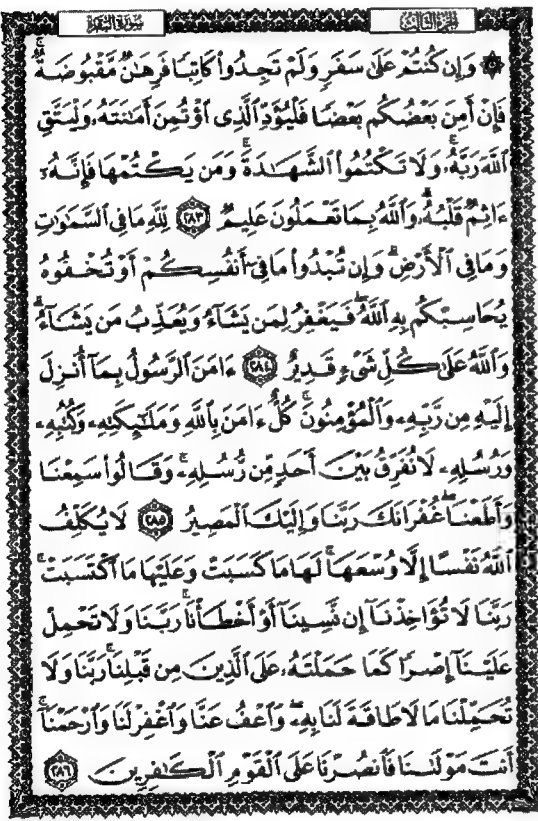 سورة البقرة
الجزء الثالث
۞ وَإِن كُنتُمْ عَلَىٰ سَفَرٍ وَلَمْ تَجِدُوا۟ كَاتِبًا فَرِهَٰنٌ مَّقْبُوضَةٌ ۖ
فَإِنْ أَمِنَ بَعْضُكُم بَعْضًا فَلْيُؤَدِّ ٱلَّذِى ٱؤْتُمِنَ أَمَٰنَتَهُۥ وَلْيَتَّقِ
ٱللَّهَ رَبَّهُۥ ۗ وَلَا تَكْتُمُوا۟ ٱلشَّهَٰدَةَ ۚ وَمَن يَكْتُمْهَا فَإِنَّهُۥٓ
ءَاثِمٌ قَلْبُهُۥ ۗ وَٱللَّهُ بِمَا تَعْمَلُونَ عَلِيمٌ ٢٨٣ لِّلَّهِ مَا فِى ٱلسَّمَٰوَٰتِ
وَمَا فِى ٱلْأَرْضِ ۗ وَإِن تُبْدُوا۟ مَا فِىٓ أَنفُسِكُمْ أَوْ تُخْفُوهُ
يُحَاسِبْكُم بِهِ ٱللَّهُ ۖ فَيَغْفِرُ لِمَن يَشَآءُ وَيُعَذِّبُ مَن يَشَآءُ ۗ
وَٱللَّهُ عَلَىٰ كُلِّ شَىْءٍ قَدِيرٌ ٢٨٤ ءَامَنَ ٱلرَّسُولُ بِمَآ أُنزِلَ
إِلَيْهِ مِن رَّبِّهِۦ وَٱلْمُؤْمِنُونَ ۚ كُلٌّ ءَامَنَ بِٱللَّهِ وَمَلَٰٓئِكَتِهِۦ وَكُتُبِهِۦ
وَرُسُلِهِۦ لَا نُفَرِّقُ بَيْنَ أَحَدٍ مِّن رُّسُلِهِۦ ۚ وَقَالُوا۟ سَمِعْنَا
وَأَطَعْنَا ۖ غُفْرَانَكَ رَبَّنَا وَإِلَيْكَ ٱلْمَصِيرُ ٢٨٥ لَا يُكَلِّفُ
ٱللَّهُ نَفْسًا إِلَّا وُسْعَهَا ۚ لَهَا مَا كَسَبَتْ وَعَلَيْهَا مَا ٱكْتَسَبَتْ ۗ
رَبَّنَا لَا تُؤَاخِذْنَآ إِن نَّسِينَآ أَوْ أَخْطَأْنَا ۚ رَبَّنَا وَلَا تَحْمِلْ
عَلَيْنَآ إِصْرًا كَمَا حَمَلْتَهُۥ عَلَى ٱلَّذِينَ مِن قَبْلِنَا ۚ رَبَّنَا وَلَا
تُحَمِّلْنَا مَا لَا طَاقَةَ لَنَا بِهِۦ ۖ وَٱعْفُ عَنَّا وَٱغْفِرْ لَنَا وَٱرْحَمْنَآ ۚ
أَنتَ مَوْلَىٰنَا فَٱنصُرْنَا عَلَى ٱلْقَوْمِ ٱلْكَٰفِرِينَ ٢٨٦